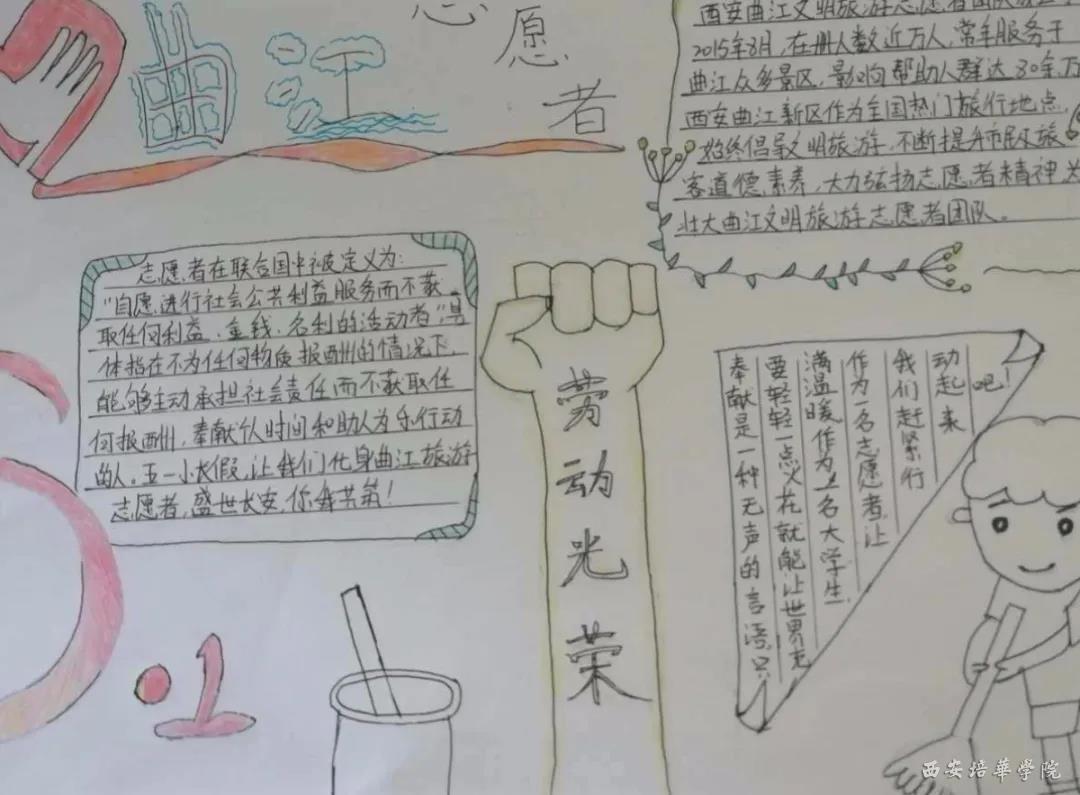 曲江
愿
者
西安曲江文明旅游志愿者团队
2015年8月,在册人数近万人,常年服务于
曲江众多景区,影响帮助人群达80余万
西安曲江新区作为全国热门旅行地点,
始终倡导文明旅游,不断提升市民及旅
客道德素养,大力弘扬志愿者精神为
壮大曲江文明旅游志愿者团队。
志愿者在联合国中被定义为:
"自愿进行社会公共利益服务而不获
取任何利益、金钱、名利的活动者",具
体指在不为任何物质报酬的情况下,
能够主动承担社会责任而不获取任
何报酬,奉献个人时间和助人为乐行动
的人。五一小长假,让我们化身曲江旅游
志愿者,盛世长安,你我共筑!
劳动光荣
奉献是一种无声的言语,只
要轻轻一点火花就能让世界充
满温暖,作为一名大学生,
作为一名志愿者,让
我们赶紧行
动起来
吧!
5·1
西安培華学院